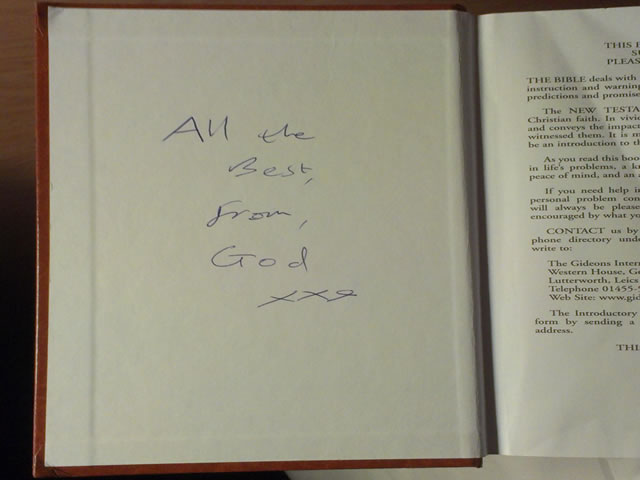 All the
Best,
From,
God
xxx
THIS
PLEAS
THE BIBLE deals with
instruction and warning
predictions and promise
The NEW TESTA
Christian faith. In vivi
and conveys the impact
witnessed them. It is m
be an introduction to th
As you read this boo
in life's problems, a k
peace of mind, and an
If you need help i
personal problem con
will always be please
encouraged by what yo
CONTACT us by
phone directory unde
write to:
The Gideons Intern
Western House, Ge
Lutterworth, Leics
Telephone 01455-5
Web Site: www.gid
The Introductory
form by sending a
address.
THI